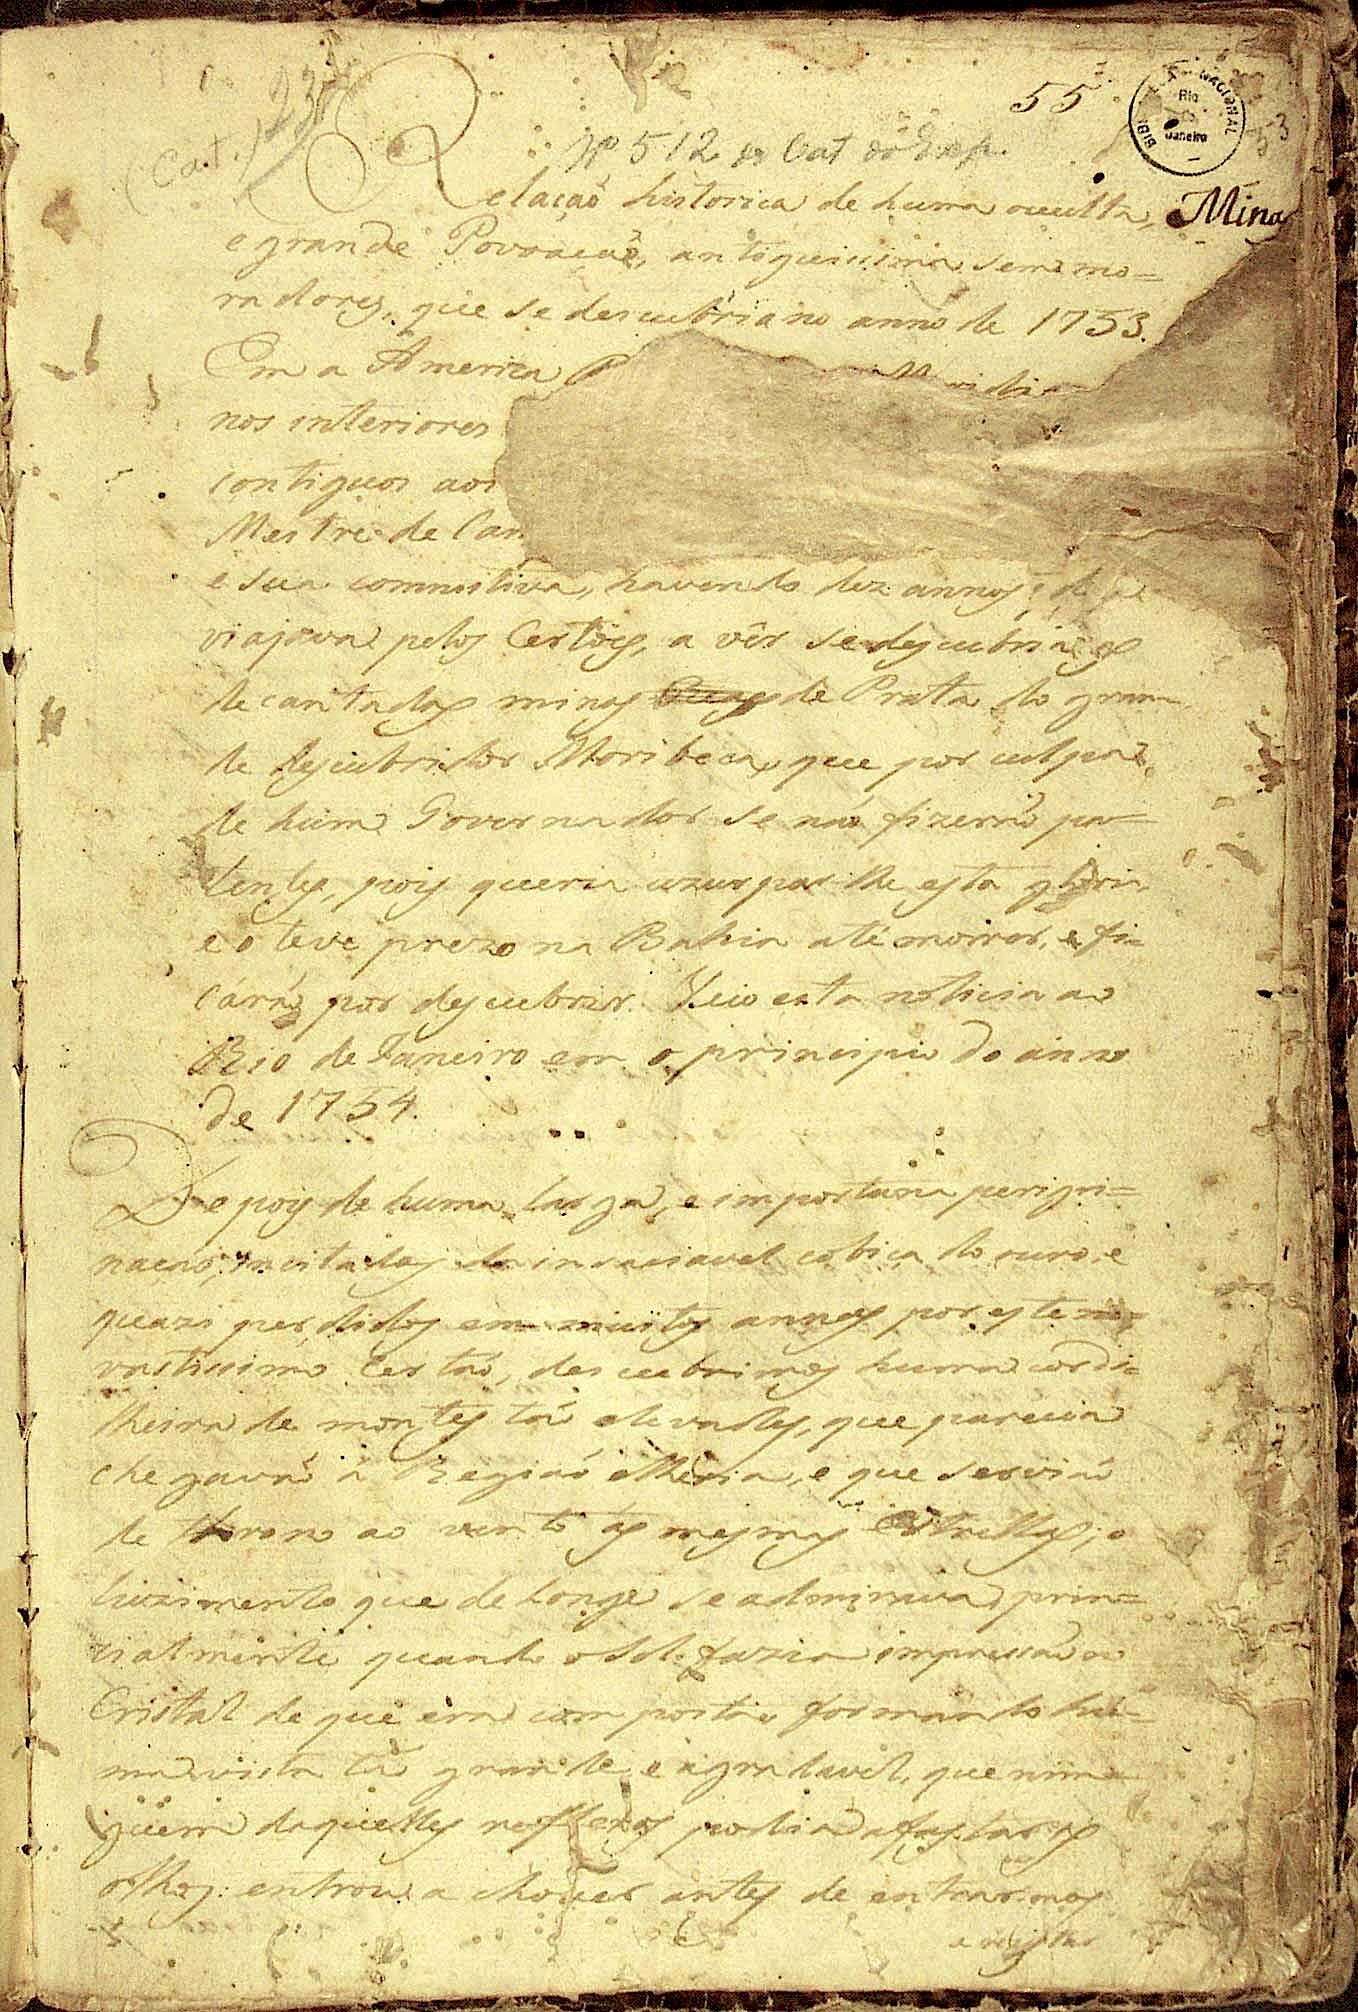 55
BIBLIOTECA NACIONAL
Rio
Janeiro
(Cat.) 23
Nº 512 do Cat da Exp.
Relação historica de huma occulta,
Mina
e grande Povoação, antiguissima sem mo=
radores, que se descubriu no anno de 1753.
Em a America
nos interiores
contiguos aos
Mestre de Can
e sua commitiva, havendo dez annos, q
viajava pelos Certões, a vêr se descubria os
decantadas minas de Prata do gran
de descubridor Moribeca, que por culpa
de hum Governador se não fizerão pa=
tentes, pois queria uzurparlhe esta gloria
e o teve prezo na Bahia até morrer, e fi=
cárão por descubrir. Veio esta noticia ao
Rio de Janeiro em o principio do anno
de 1754.
Depois de huma larga, e importuna perigri=
nação, incitados da insaciavel cobiça do ouro, e
quazi perdidos em muitos annos por este
vastissimo Certão, descubrimos huma cordi=
lheira de montes tão elevados, que parecia
chegavão á Região etheria, e que servião
de throno ao vento ás mesmas Estrellas; o
luzimento que de longe se admirava, prin=
cialmente quando o Sol fazia impressão ao
Cristal de que era composta formando hu=
ma vista tão grande e agradavel, que nin=
guem daquelles reflexos podia afastar os
olhos: entrou a chover antes de entrarmos
a registar